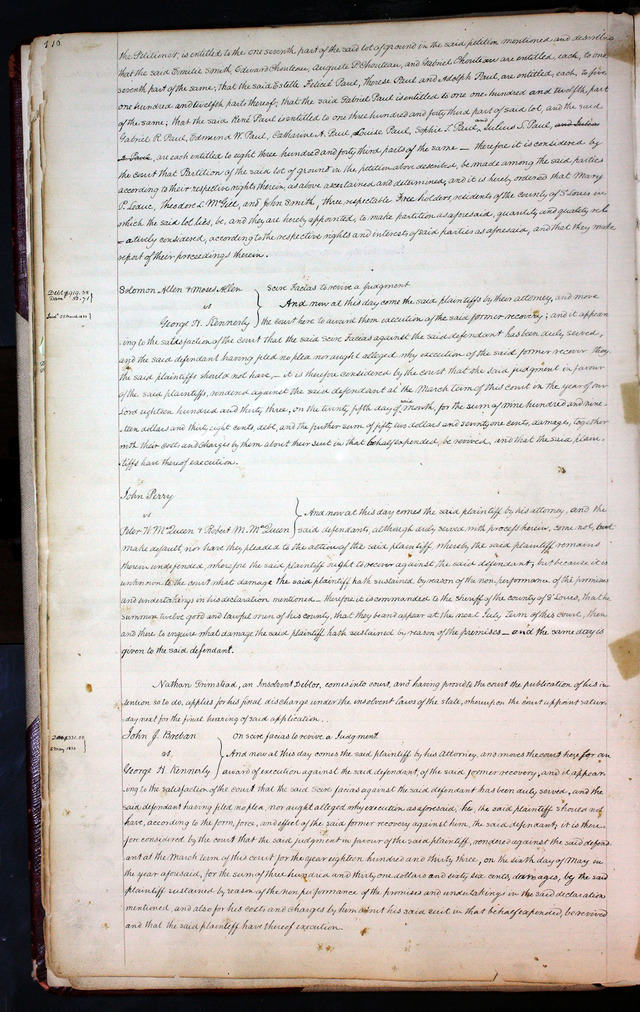 110
the Petitioner, is entitled to the one seventh part of the said lot of ground in the said petition mentioned and described
that the said Emilie Smith, Edward Chouteau, Auguste P. Chouteau, and Gabriel Chouteau are entitled, each, to one
seventh part of the same; that the said Estelle Felicié Paul, Therese Paul and Adolph Paul, are entitled, each, to five
one hundred and twelfth parts thereof; that the said Gabriel Paul is entitled to one one hundred and twelfth part
of the same; that the said René Paul is entitled to one three hundred and forty third part of said lot, and the said
Gabriel R. Paul, Edmund W. Paul, Catharine A. Paul, Louise Paul, Sophie T. Paul, and Julius S. Paul, and Julius
S. Paul, are each entitled to eight three hundred and forty third parts of the same — therefore it is considered by
the court that Partition of the said lot of ground in the petition above described, be made among the said parties
according to their respective rights therein, as above ascertained and determined, and it is hereby ordered that Mary
P. Leduc, Theodore L. McGill, and John Smith, three respectable Free holders, residents of the county of St Louis in
which the said lot lies, be, and they are hereby appointed, to make partition as aforesaid, quantity and quality rel
-atively considered, according to the respective rights and interests of said parties as aforesaid, and that they make
report of their proceedings therein.
Debt $919.38
Dam 52.71
Solomon Allen & Moses Allen
vs
George H. Kennerly
Scire Facias to revive a judgment
And now at this day come the said plaintiffs by their attorney, and move
the court here to award them execution of the said former recovery; and it appear-
ing to the satisfaction of the court that the said Scire Facias against the said defendant has been duly served,
and the said defendant having filed no plea nor aught alleged why execution of the said former recover they
the said plaintiffs should not have, — it is therefore considered by the court that the said judgment in favour
of the said plaintiffs, rendered against the said defendant at the March term of this court in the year of our
Lord eighteen hundred and thirty three, on the twenty fifth day of said month, for the sum of nine hundred and nine-
teen dollars and thirty eight cents, debt, and the further sum of fifty two dollars and seventy one cents, damages, together
with their costs and charges by them about their suit in that behalf expended, be revived, and that the said plain-
tiffs have thereof execution.
John Perry
vs
Peter W. McQueen & Robert M. McQueen
And now at this day comes the said plaintiff by his attorney, and the
said defendants, although duly served with process herein, come not, but
make default, nor have they pleaded to the action of the said plaintiff, whereby the said plaintiff remains
therein undefended, wherefore the said plaintiff ought to recover against the said defendant; but because it is
unknown to the court what damage the said plaintiff hath sustained by reason of the non performance of the promises
and undertakings in his declaration mentioned — therefore it is commanded to the sheriff of the county of St Louis, that he
summon twelve good and lawful men of his county, that they be and appear at the next July Term of this court, then
and there to inquire what damage the said plaintiff hath sustained by reason of the premises — and the same day is
given to the said defendant.
Nathan Grimstead, an Insolvent Debtor, comes into court, and having proved to the court the publication of his in
tention so to do, applies for his final discharge under the insolvent laws of the state, whereupon the court appoint satur
day next for the final hearing of said application.
John J. Breban
vs,
George H. Kennerly
On scire facias to revive a Judgment
And now at this day comes the said plaintiff by his Attorney, and moves the court here for an
award of execution against the said defendant, of the said former recovery, and it appear
ing to the satisfaction of the court that the said Scire facias against the said defendant has been duly served, and the
said defendant having filed no plea, nor aught alleged why execution as aforesaid, he, the said plaintiff should not
have, according to the form, force, and effect of the said former recovery against him, the said defendant; it is there
fore considered by the court that the said judgment in favour of the said plaintiff, rendered against the said defend
ant at the March term of this court for the year eighteen hundred and thirty three, on the sixth day of May in
the year aforesaid, for the sum of three hundred and thirty one dollars and sixty six cents, damages, by the said
plaintiff sustained by reason of the non performance of the promises and undertakings in the said declaration
mentioned, and also for his costs and charges by him about his said suit in that behalf expended, be revived
and that the said plaintiff have thereof execution.